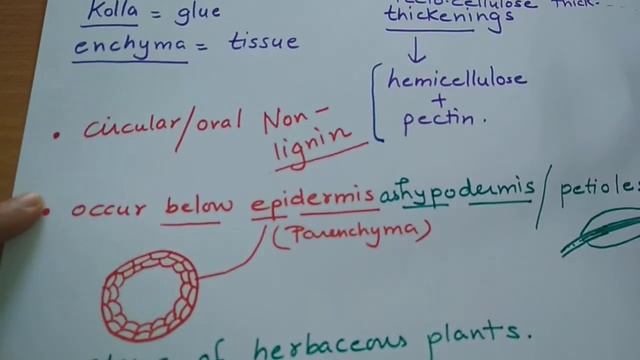 Kolla = glue
thick.
enchyma = tissue
thickenings
hemicellulose
+
pectin.
• circular/oral Non-lignin
• occur below epidermis as hypodermis / petioles
(Parenchyma)
of herbaceous plants.